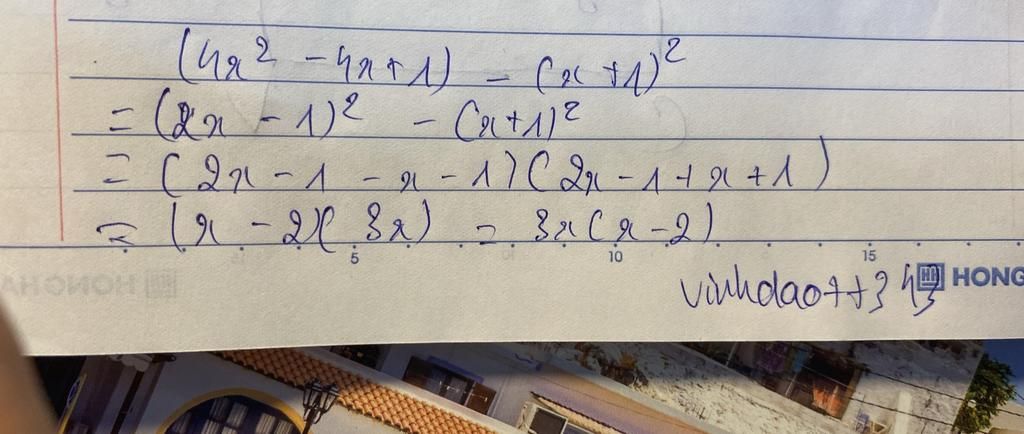 (4x² - 4x + 1) - (x + 1)²
= (2x - 1)² - (x+1)²
= (2x - 1 - x - 1)(2x - 1 + x + 1)
= (x - 2)(3x) = 3x(x - 2)
5 10 15
HONG